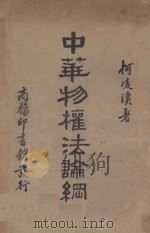 柯凌漢著
中華物權法論綱
商務印書館發行